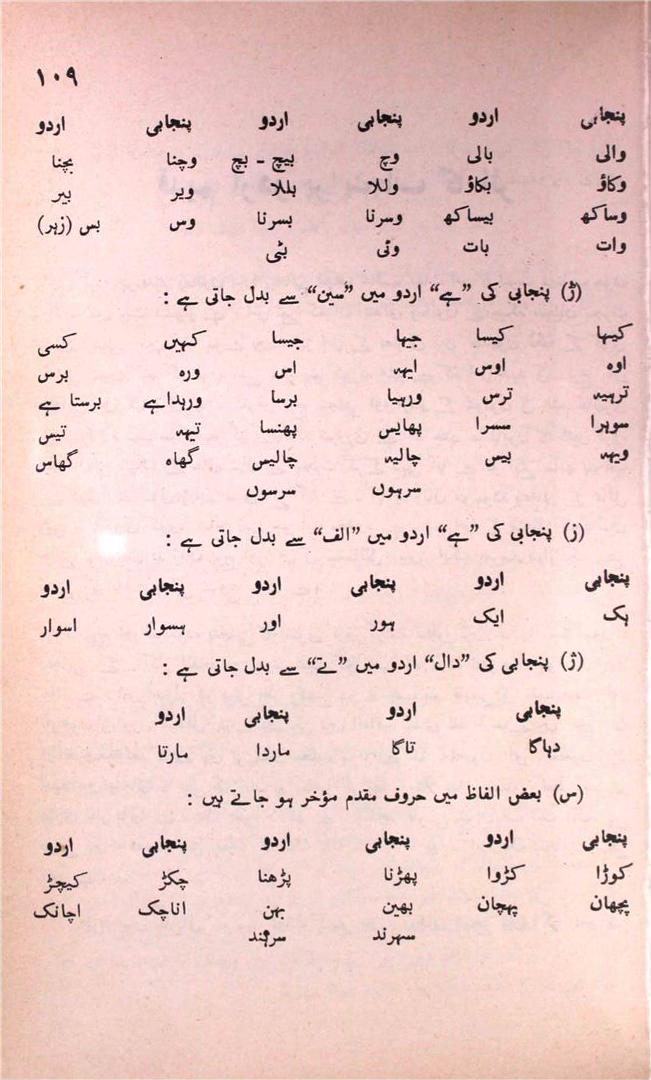 ۱۰۹
پنجابی اردو پنجابی اردو پنجابی اردو
والی بالی وچ بیچ - بچ وچنا بچنا
وکاؤ بکاؤ وللا بللا ویر بیر
وساکھ بیساکھ وسرنا بسرنا وس بس (زہر)
وات بات وٹی بٹی
(ڑ) پنجابی کی ”ہے“ اردو میں ”سین“ سے بدل جاتی ہے :
کیہا کیسا جیہا جیسا کہیں کسی
اوہ اوس ایہہ اس ورہ برس
ترہیہ ترس ورہیا برسا ورہداہے برستا ہے
سوہرا سسرا پھاہیں پھنسا تیہہ تیس
ویہہ بیس چالیہ چالیس گھاہ گھاس
سرہوں سرسوں
(ز) پنجابی کی ”ہے“ اردو میں ”الف“ سے بدل جاتی ہے :
پنجابی اردو پنجابی اردو پنجابی اردو
ہک ایک ہور اور ہسوار اسوار
(ژ) پنجابی کی ”دال“ اردو میں ”تے“ سے بدل جاتی ہے :
پنجابی اردو پنجابی اردو
دہاگا تاگا ماردا مارتا
(س) بعض الفاظ میں حروف مقدم مؤخر ہو جاتے ہیں :
پنجابی اردو پنجابی اردو پنجابی اردو
کوڑا کڑوا پھڑنا پڑھنا چکڑ کیچڑ
پچھان پہچان بھین بہن اناچک اچانک
سہرند سرہند